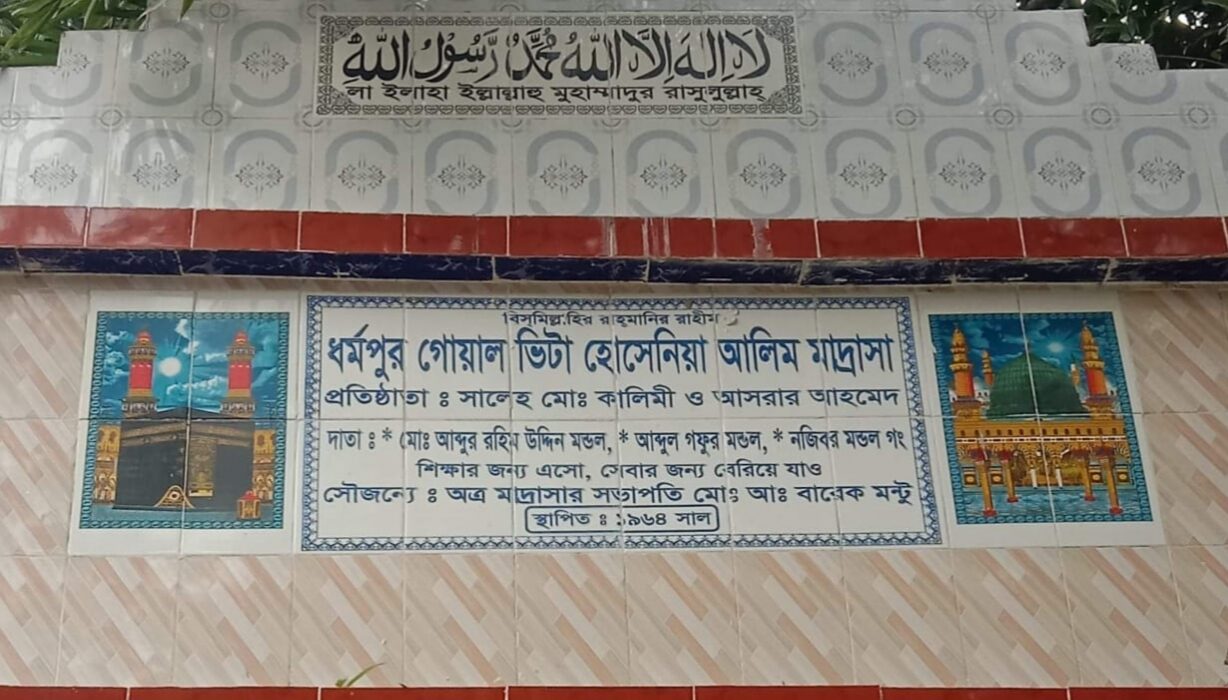 لا اله الا الله محمد رسول الله
লা ইলাহা ইল্লাল্লাহু মুহাম্মাদুর রাসুলুল্লাহ্
বিসমিল্লাহির রাহমানির রাহীম
ধর্মপুর গোয়াল ভিটা হোসেনিয়া আলিম মাদ্রাসা
প্রতিষ্ঠাতা ঃ সালেহ মোঃ কালিমী ও আসরার আহমেদ
দাতা ঃ * মোঃ আব্দুর রহিম উদ্দিন মন্ডল, * আব্দুল গফুর মন্ডল, * নজিবর মন্ডল গং
শিক্ষার জন্য এসো, সেবার জন্য বেরিয়ে যাও
সৌজন্যে ঃ অত্র মাদ্রাসার সভাপতি মোঃ আঃ বারেক মন্টু
স্থাপিত ঃ ১৯৬৪ সাল